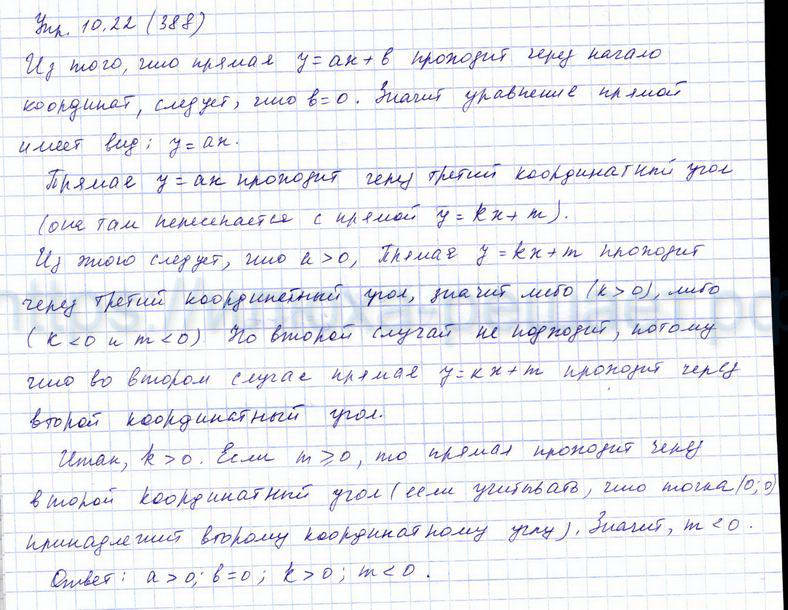 Упр. 10.22 (388)
Из того, что прямая y = ax + b проходит через начало
координат, следует, что b = 0. Значит уравнение прямой
имеет вид: y = ax.
Прямая y = ax проходит через третий координатный угол
(она там пересекается с прямой y = kx + m).
Из этого следует, что a > 0, Прямая y = kx + m проходит
через третий координатный угол, значит либо (k > 0), либо
(k < 0 и m < 0) Но второй случай не подходит, потому
что во втором случае прямая y = kx + m проходит через
второй координатный угол.
Итак, k > 0. Если m ⩾ 0, то прямая проходит через
второй координатный угол (если учитывать, что точка (0; 0)
принадлежит второму координатному углу). Значит, m < 0.
Ответ: a > 0; b = 0; k > 0; m < 0.